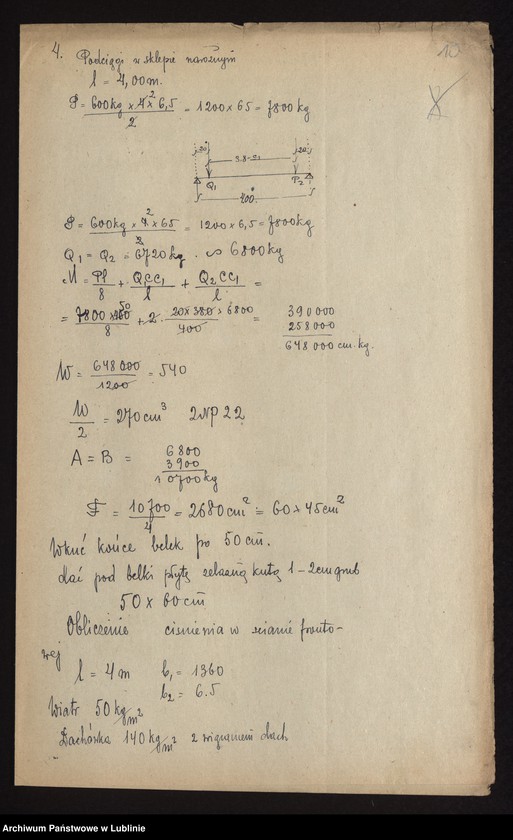 10
4. Podciągi w sklepie narożnym
l = 4,00 m.
P = 600 kg × 4 × 6,5 / 2 = 1200 × 65 = 7800 kg
20 3.8-m 20
Q1 P2
400
P = 600 kg × 4 × 65 / 2 = 1200 × 6,5 = 7800 kg
Q1 = Q2 = 6720 kg. ∽ 6800 kg
M = Pl / 8 + QCC1 / l + Q2CC1 / l =
= 7800 × 400 / 8 + 2 · 20 × 380 × 6800 / 400 =
390000
258000
648 000 cm. kg.
W = 648 000 / 1200 = 540
W / 2 = 270 cm³ 2NP 22
A = B =
6800
3900
10700 kg
F = 10700 / 4 = 2680 cm² = 60 × 45 cm²
Wkuć końce belek po 50 cm.
dać pod belki płytę żelazną kutą 1 – 2 cm grub
50 × 60 cm
Obliczenie ciśnienia w ścianie fronto-
wej
l = 4 m b1 = 1360
b2 = 6.5
Wiatr 50 kg/m²
Dachówka 140 kg/m² z wiązaniem dach
Archiwum Państwowe w Lublinie